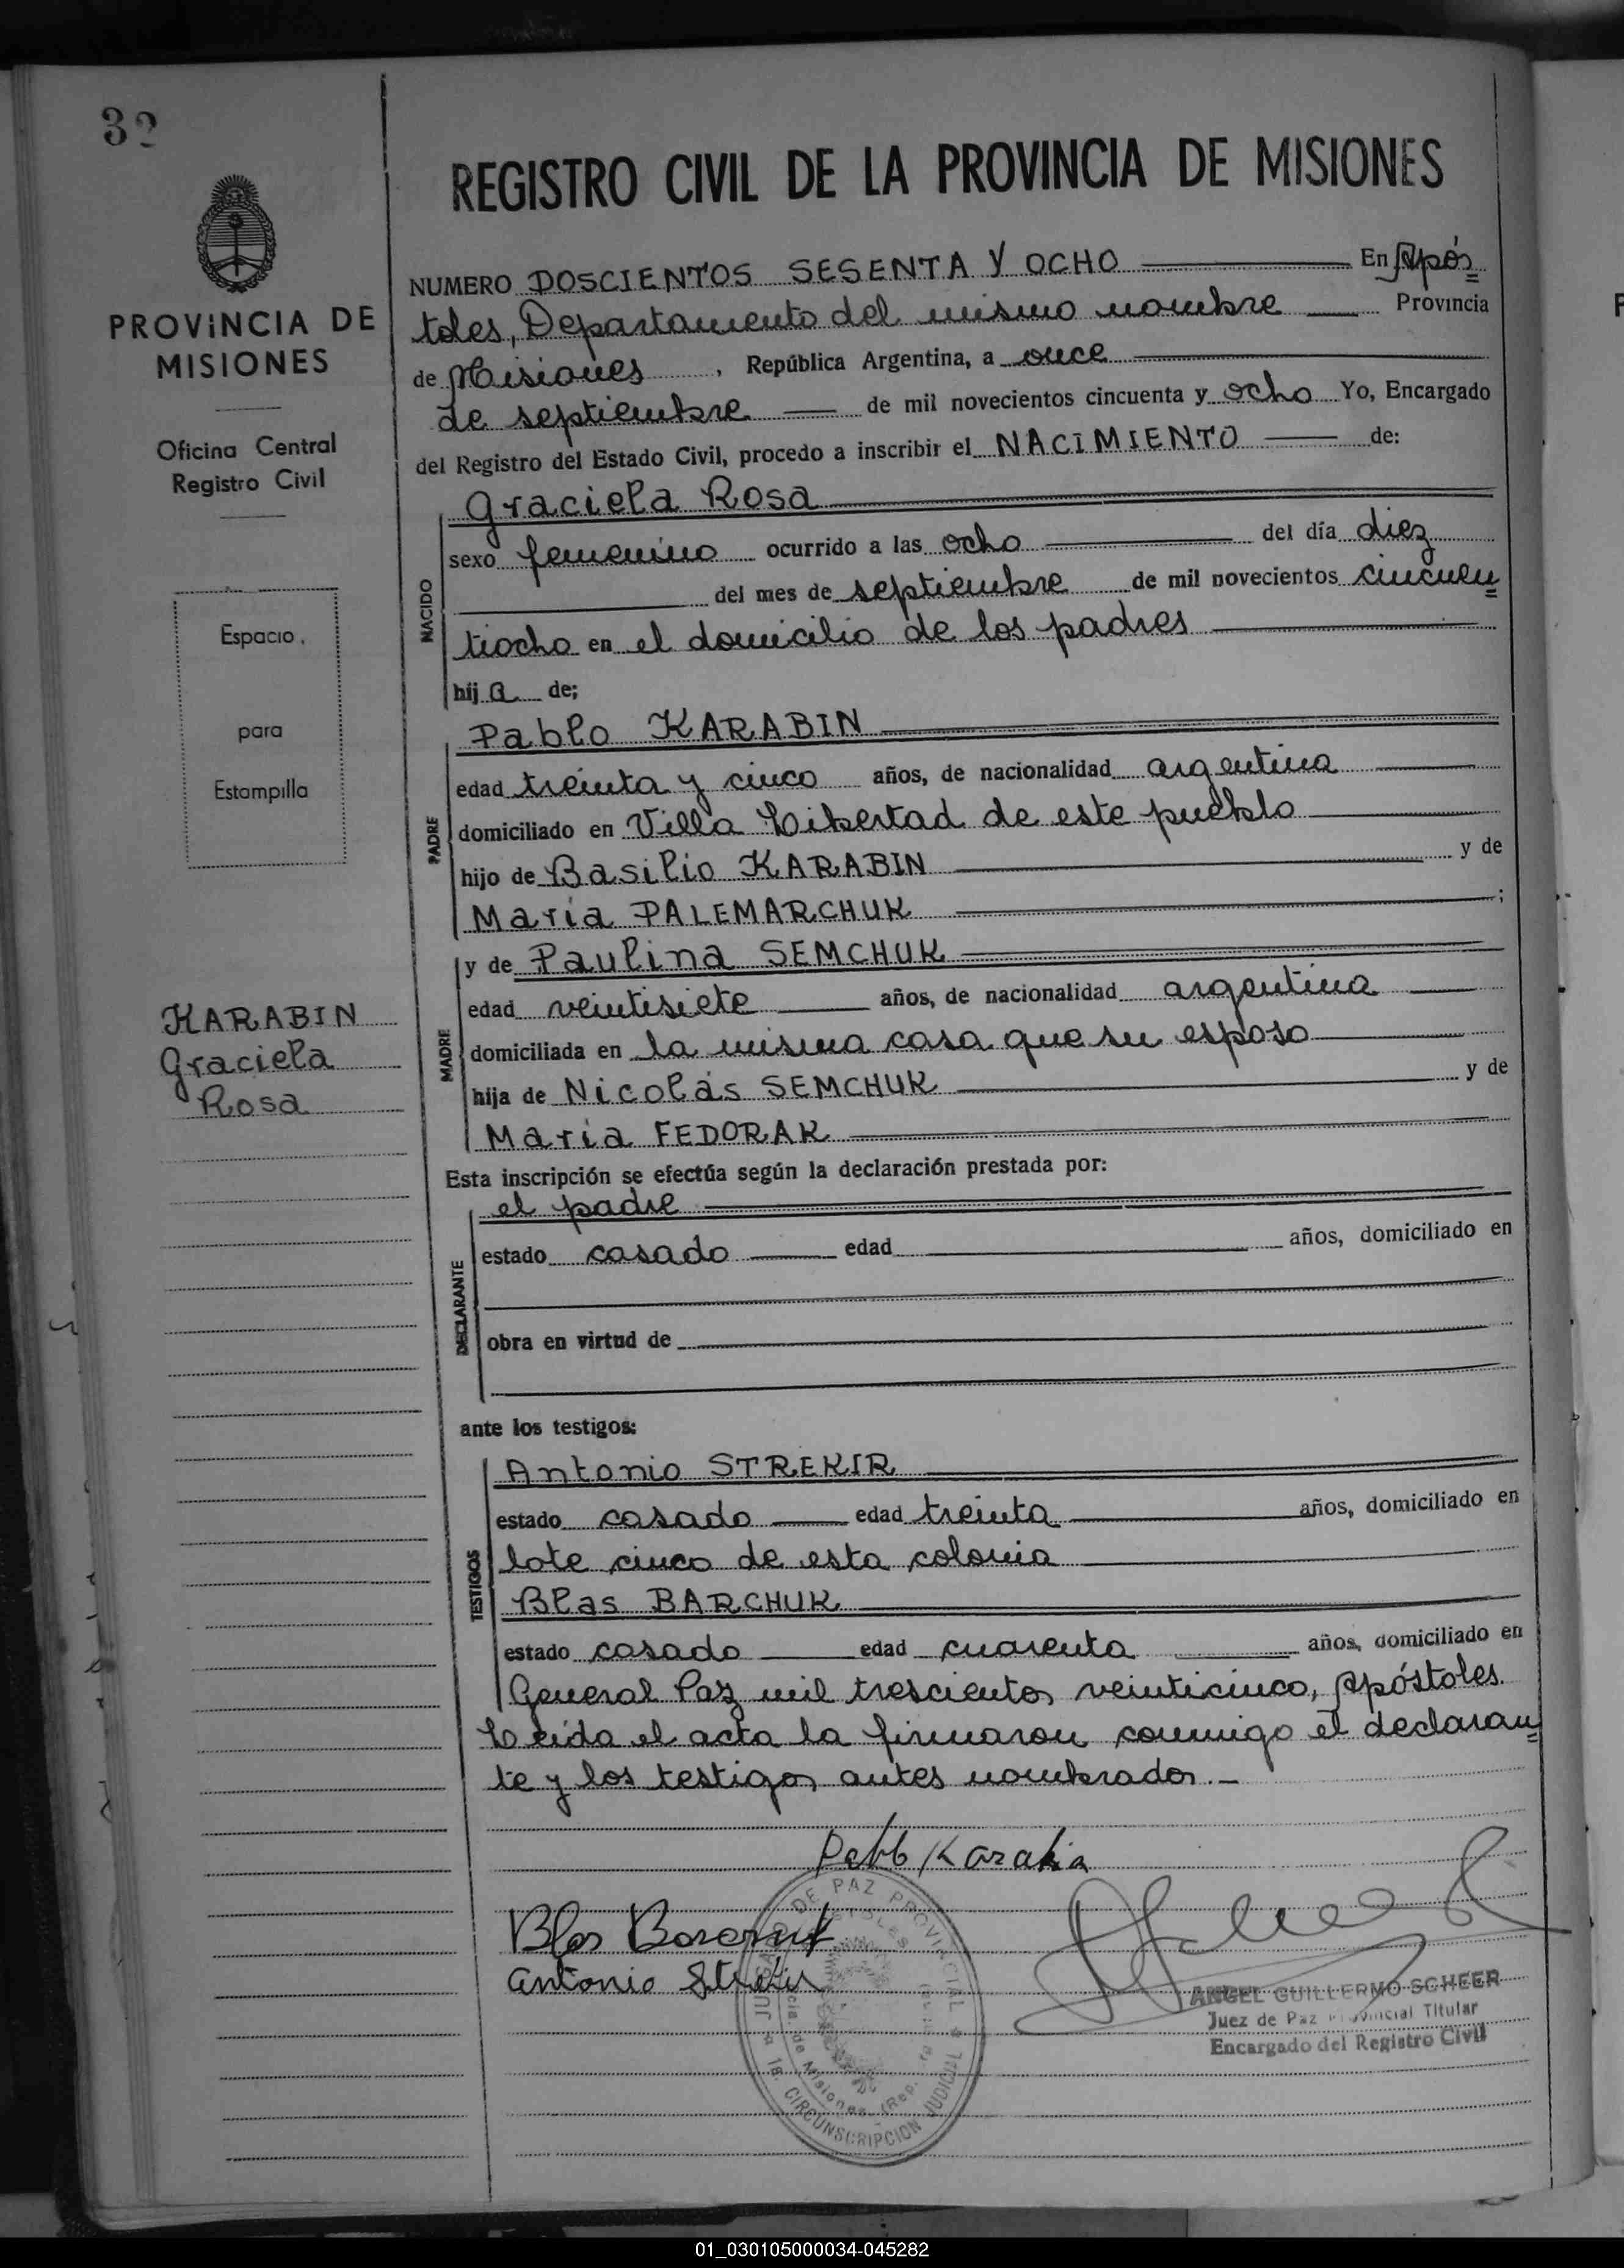 32
REGISTRO CIVIL DE LA PROVINCIA DE MISIONES
PROVINCIA DE
MISIONES
Oficina Central
Registro Civil
Espacio
para
Estampilla
KARABIN
Graciela
Rosa
NUMERO DOSCIENTOS SESENTA Y OCHO En Após=
toles, Departamento del mismo nombre Provincia
de Misiones, República Argentina, a once
de septiembre de mil novecientos cincuenta y ocho Yo, Encargado
del Registro del Estado Civil, procedo a inscribir el NACIMIENTO de:
NACIDO
Graciela Rosa
sexo femenino ocurrido a las ocho del día diez
del mes de septiembre de mil novecientos cincuen=
tiocho en el domicilio de los padres
hija de;
PADRE
Pablo KARABIN
edad treinta y cinco años, de nacionalidad argentina
domiciliado en Villa Libertad de este pueblo
hijo de Basilio KARABIN y de
María PALEMARCHUK ;
MADRE
y de Paulina SEMCHUK
edad veintisiete años, de nacionalidad argentina
domiciliada en la misma casa que su esposo
hija de Nicolás SEMCHUK y de
María FEDORAK
Esta inscripción se efectúa según la declaración prestada por:
DECLARANTE
el padre
estado casado edad años, domiciliado en
obra en virtud de
ante los testigos:
TESTIGOS
Antonio STREKIR
estado casado edad treinta años, domiciliado en
lote cinco de esta colonia
Blas BARCHUK
estado casado edad cuarenta años, domiciliado en
General Paz mil trescientos veinticinco, Apóstoles.
Leída el acta la firmaron conmigo el declaran=
te y los testigos antes nombrados.-
Pablo Karabin
Blas
Antonio
DE PAZ PROVINCIAL
CIRCUNSCRIPCION JUDICIAL
de Misiones (Rep.
ANGEL GUILLERMO SCHEER
Juez de Paz Provincial Titular
Encargado del Registro Civil
01_030105000034-045282